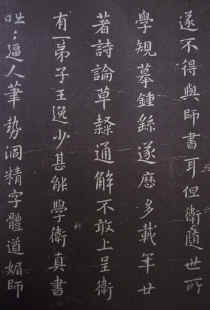 遂不得與師書耳但衛隨世所
學規摹鍾繇遂歷多載年廿
著詩論草隸通解不敢上呈衛
有一弟子王逸少甚能學衛真書
咄〻逼人筆勢洞精字體遒媚師